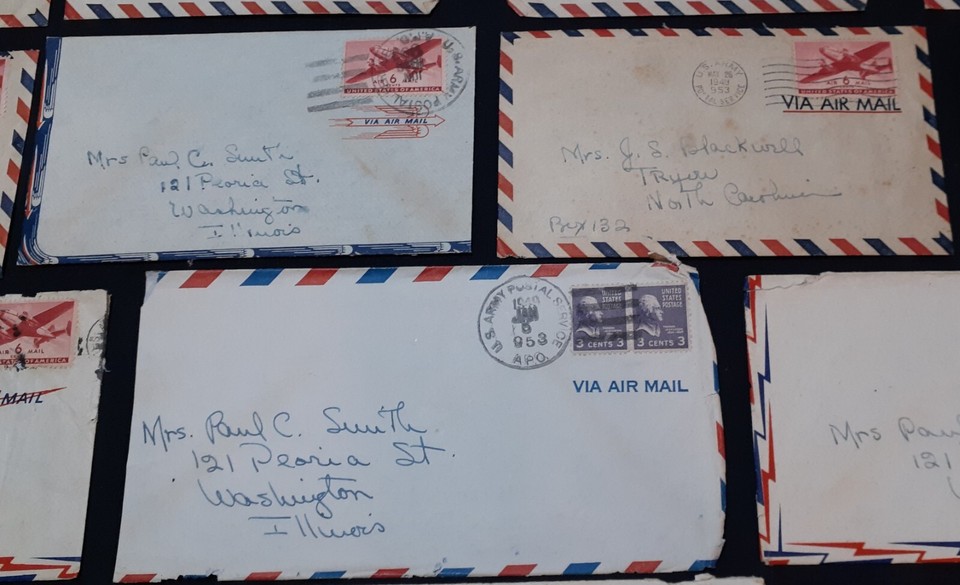 U.S. ARMY POSTAL
A.P.O.
AIR 6 MAIL
UNITED STATES OF AMERICA
VIA AIR MAIL
Mrs Paul C. Smith
121 Peoria St.
Washington
Illinois
U.S. ARMY
1949
953
AIR 6 MAIL
UNITED STATES OF AMERICA
VIA AIR MAIL
Mrs. J. S. Blackwell
Tryon
North Carolina
Box 132
AIR 6 MAIL
STATES OF AMERICA
MAIL
U.S. ARMY POSTAL SERVICE
1949
JAN
6
953
A.P.O.
UNITED STATES POSTAGE
3 CENTS 3
UNITED STATES POSTAGE
3 CENTS 3
VIA AIR MAIL
Mrs. Paul C. Smith
121 Peoria St.
Washington
Illinois
Mrs Paul
121